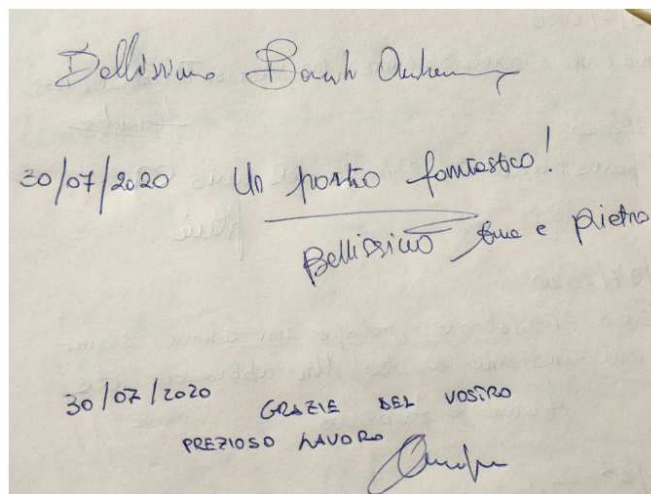 Bellissimo
30/07/2020 Un posto fantastico!
Bellissimo e Pietro
30/07/2020 GRAZIE DEL VOSTRO
PREZIOSO LAVORO